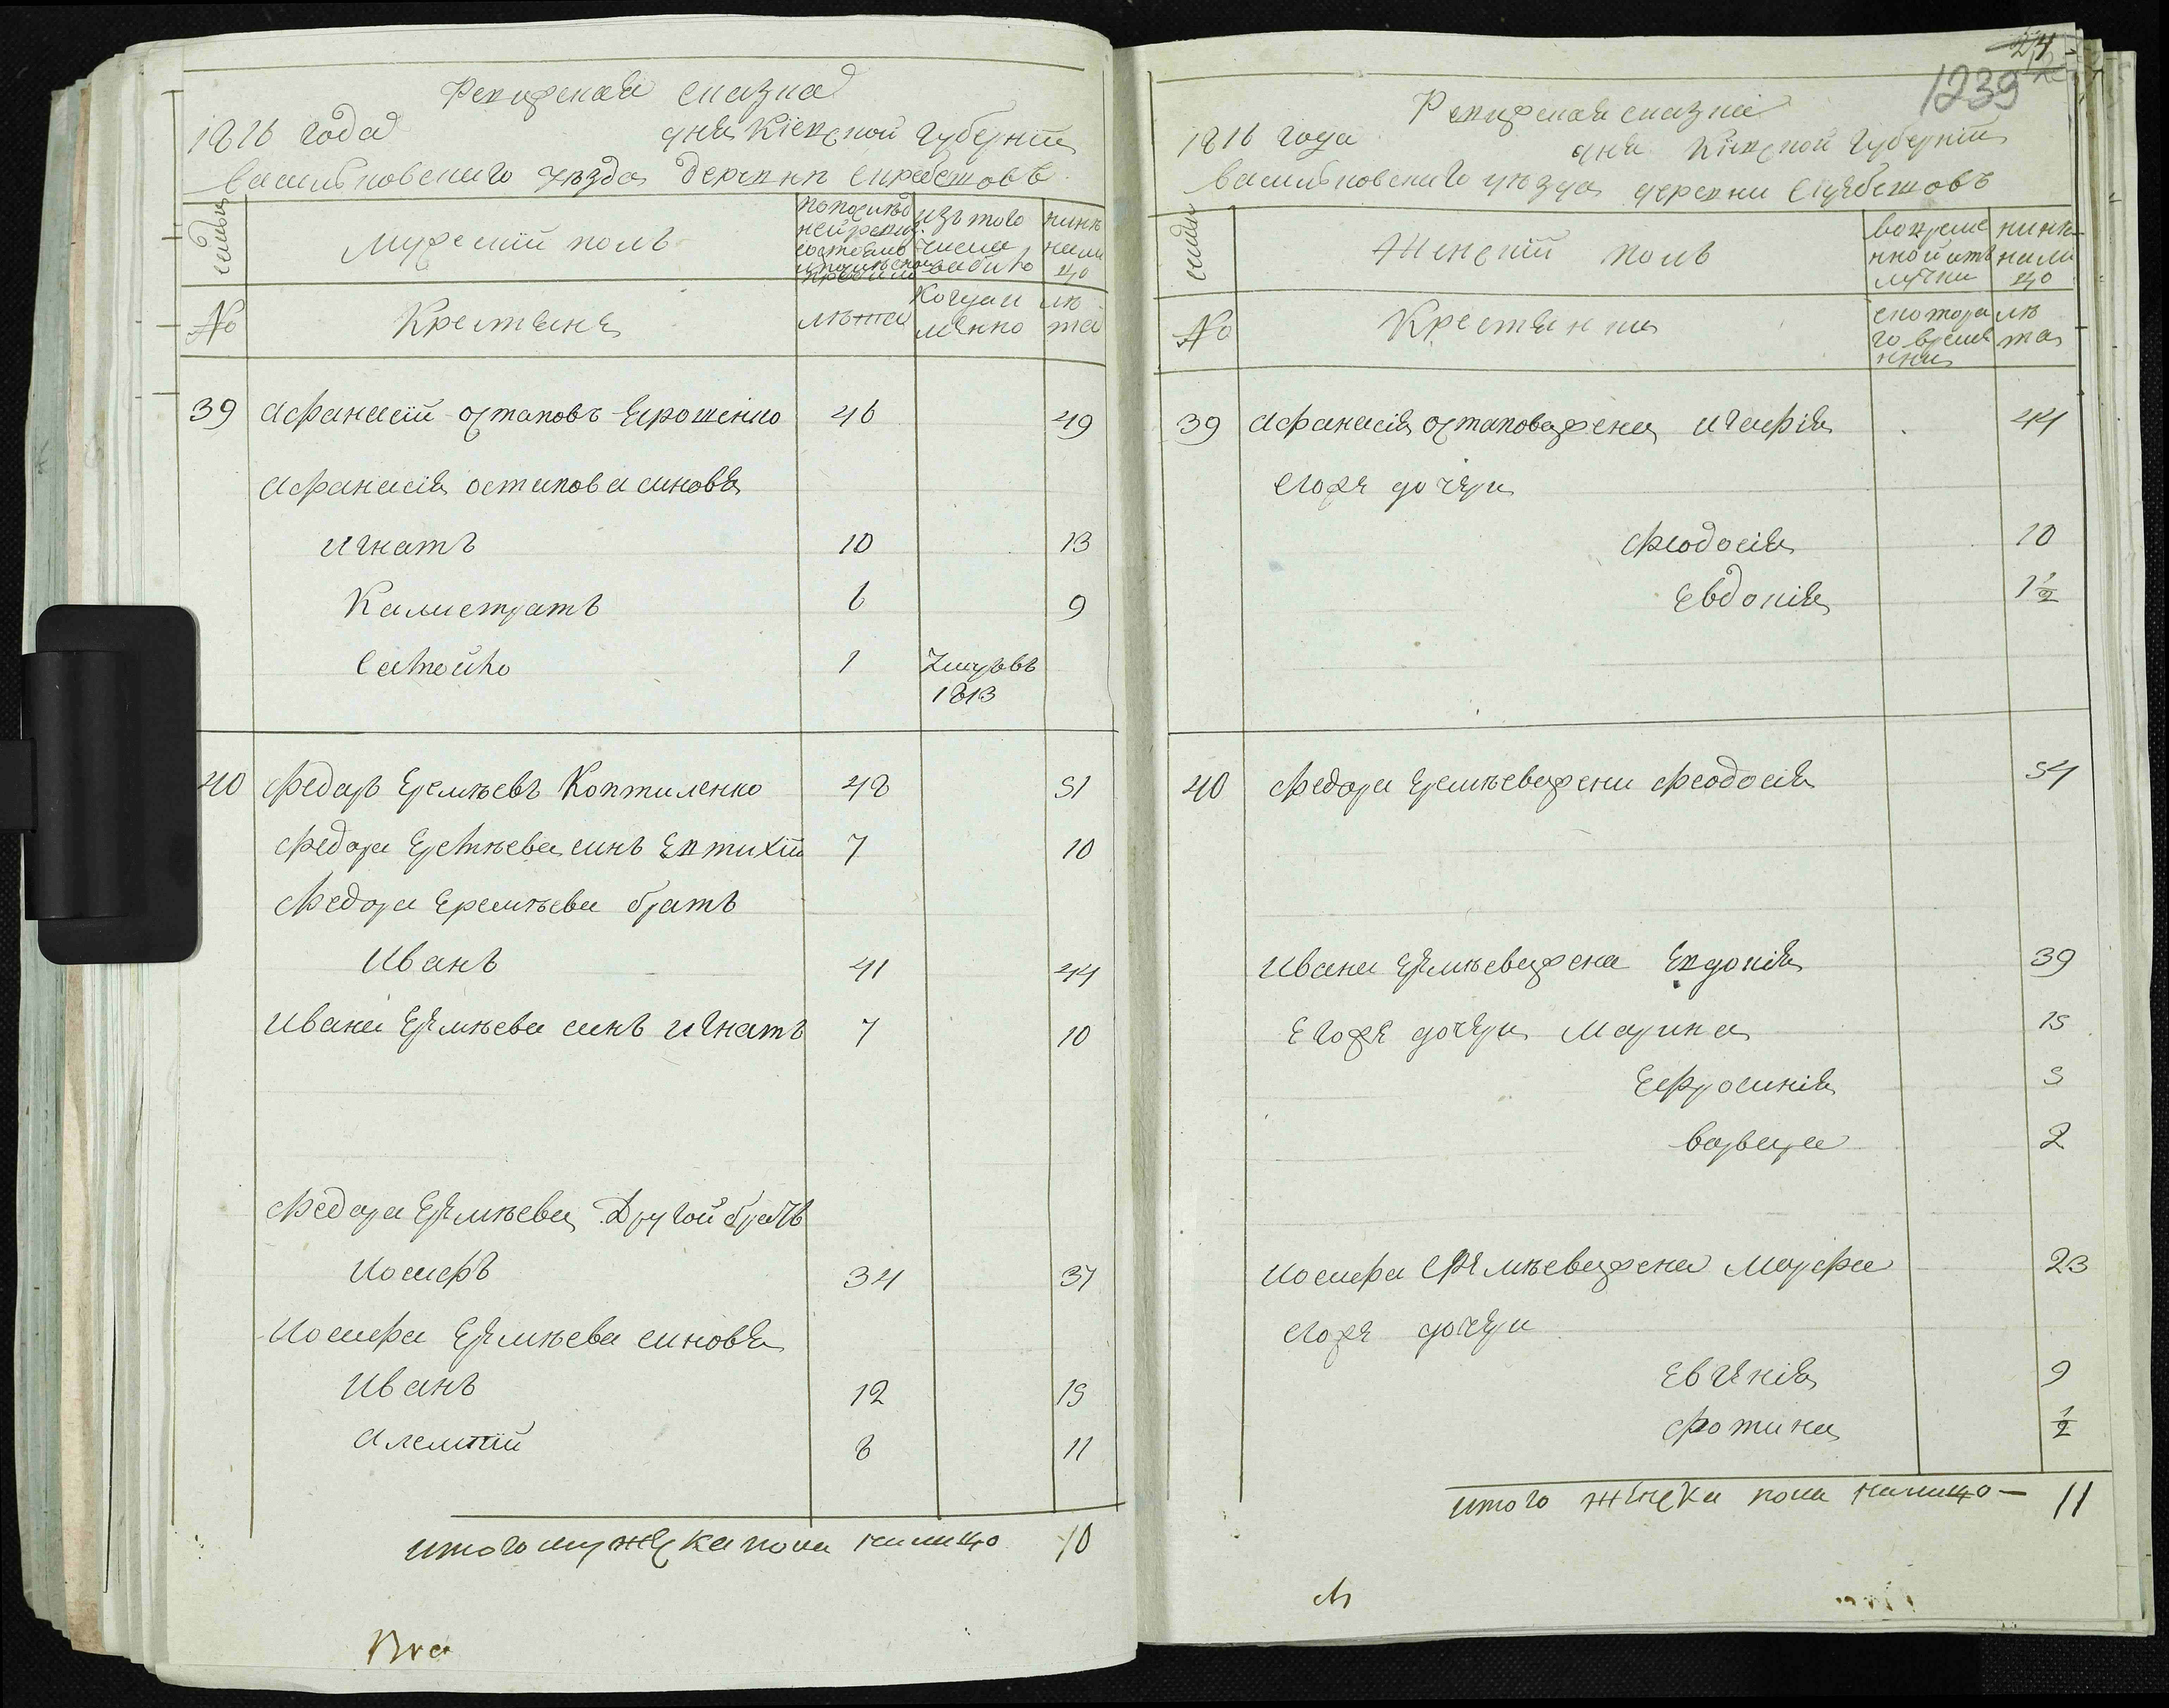 Ревизская сказка
1816 года дня Кіевской губерніи
Васильковского уѣзда деревни Скребешовъ
семьи
мужескій полъ
по послѣд
ней ревиз.
состояло
изъ того
числа
выбыло
нинѣ
нали
цо
№
Крестьяне
лѣта
когда и
менно
лѣ
та
39 Афанасій Остаповъ Ерошенко 46 49
Афанасія Остапова синовя
Игнатъ 10 13
Калистратъ 6 9
Самойло 1 Умеръ въ
1813
40 Федоръ Еремѣевъ Коптиленко 48 51
Федора Еремѣева синъ Евтихій 7 10
Федора Еремѣева братъ
Иванъ 41 44
Ивана Еремѣева синъ Игнатъ 7 10
Федора Еремѣева Другой братъ
Иосифъ 34 37
Иосифа Еремѣева синовя
Иванъ 12 15
Алексѣй 8 11
итого мужеска пола налицо 10
24
1239
Ревизская сказка
1816 года дня Кіевской губерніи
Васильковского уѣзда деревни Скребешовъ
семьи
Женскій полъ
во време
нной отъ
лучки
нинѣ
нали
цо
№
Крестьянки
с котора
го време
нни
лѣ
та
39 Афанасія Остапова жена Агафія 44
его же дочери
Феодосія 10
Евдокія 1½
40 Федора Еремѣева жена Феодосія 34
Ивана Еремѣева жена Евдокія 39
Его же дочери Марина 15
Ефросинія 5
Варвара 2
Иосифа Еремѣева жена Марфа 23
его же дочери
Евгенія 9
Фотина ½
итого женска пола налицо — 11